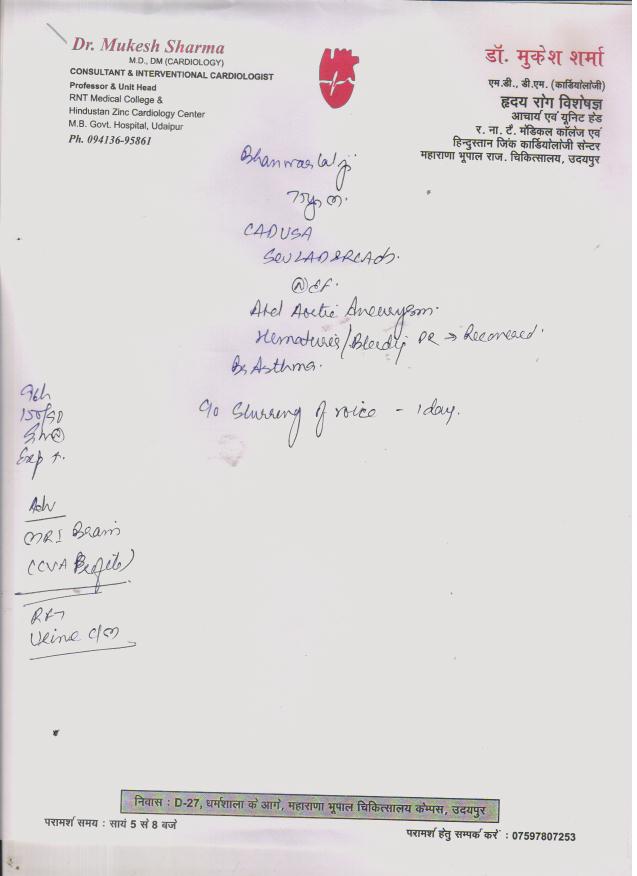 Dr. Mukesh Sharma
M.D., DM (CARDIOLOGY)
CONSULTANT & INTERVENTIONAL CARDIOLOGIST
Professor & Unit Head
RNT Medical College &
Hindustan Zinc Cardiology Center
M.B. Govt. Hospital, Udaipur
Ph. 094136-95861
डॉ. मुकेश शर्मा
एम.डी., डी.एम. (कार्डियोलॉजी)
हृदय रोग विशेषज्ञ
आचार्य एवं यूनिट हेड
र. ना. टै. मेडिकल कॉलेज एवं
हिन्दुस्तान जिंक कार्डियोलॉजी सेन्टर
महाराणा भूपाल राज. चिकित्सालय, उदयपुर
Bhanwar lal ji
CAD USA
EF.
Aortic Aneurysm.
Hematuria/Bleeding PR → Recovered.
Br Asthma.
c/o Slurring of voice - 1 day.
150/90
Adv
MRI Brain
(CVA Profile)
RFT
Urine C/M
निवास : D-27, धर्मशाला के आगे, महाराणा भूपाल चिकित्सालय केम्पस, उदयपुर
परामर्श समय : सायं 5 से 8 बजे
परामर्श हेतु सम्पर्क करें : 07597807253